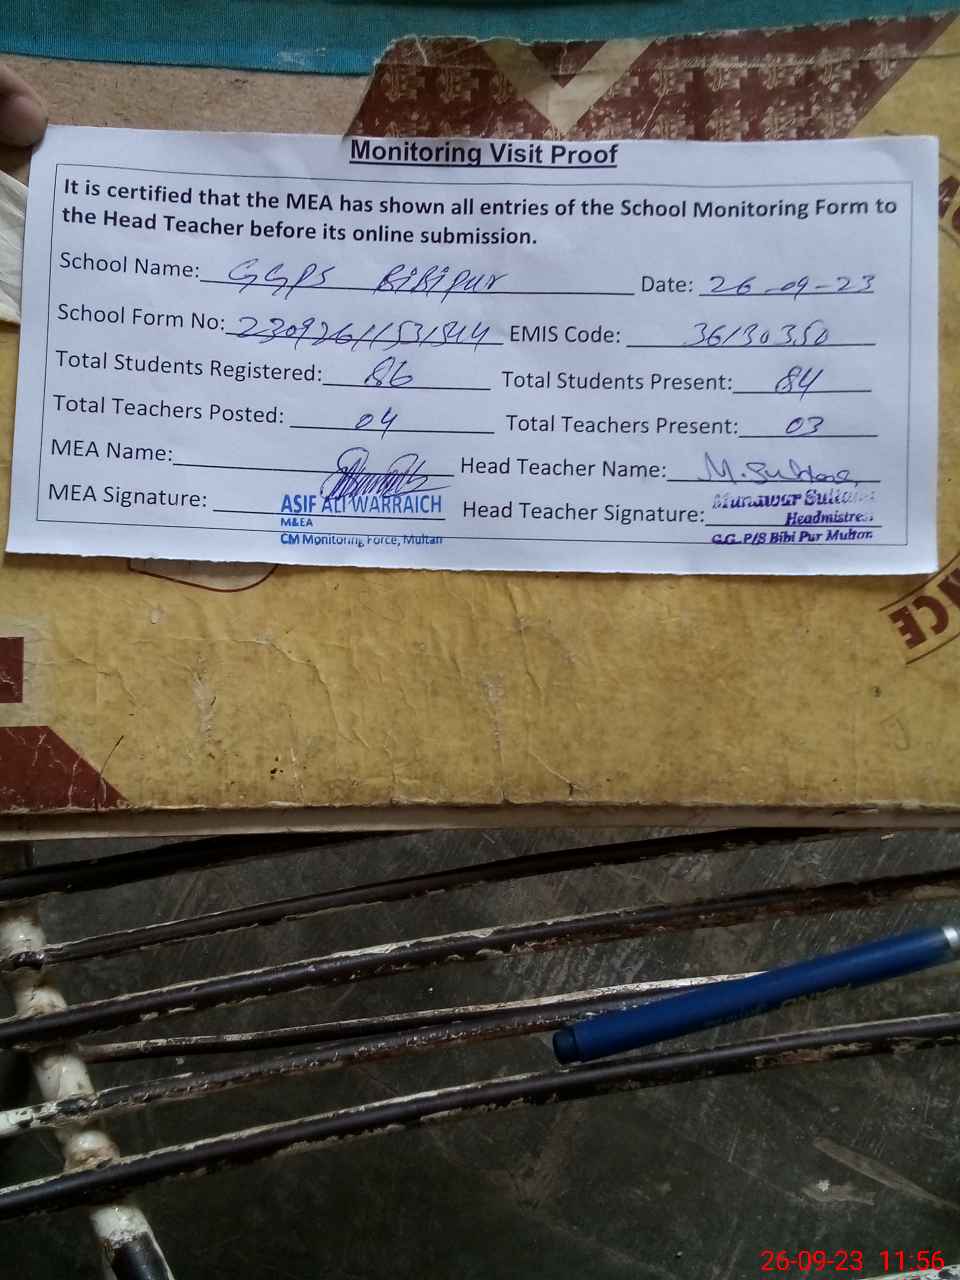 Monitoring Visit Proof
It is certified that the MEA has shown all entries of the School Monitoring Form to
the Head Teacher before its online submission.
School Name: GGPS BiBipur Date: 26-09-23
School Form No: EMIS Code: 36130350
Total Students Registered: 86 Total Students Present: 84
Total Teachers Posted: 04 Total Teachers Present: 03
MEA Name: Head Teacher Name: M. Sultana
MEA Signature: ASIF ALI WARRAICH Head Teacher Signature: Munawar Sultana
M&EA Headmistress
CM Monitoring Force, Multan G.G.P/S Bibi Pur Multan
ICE
26-09-23 11:56